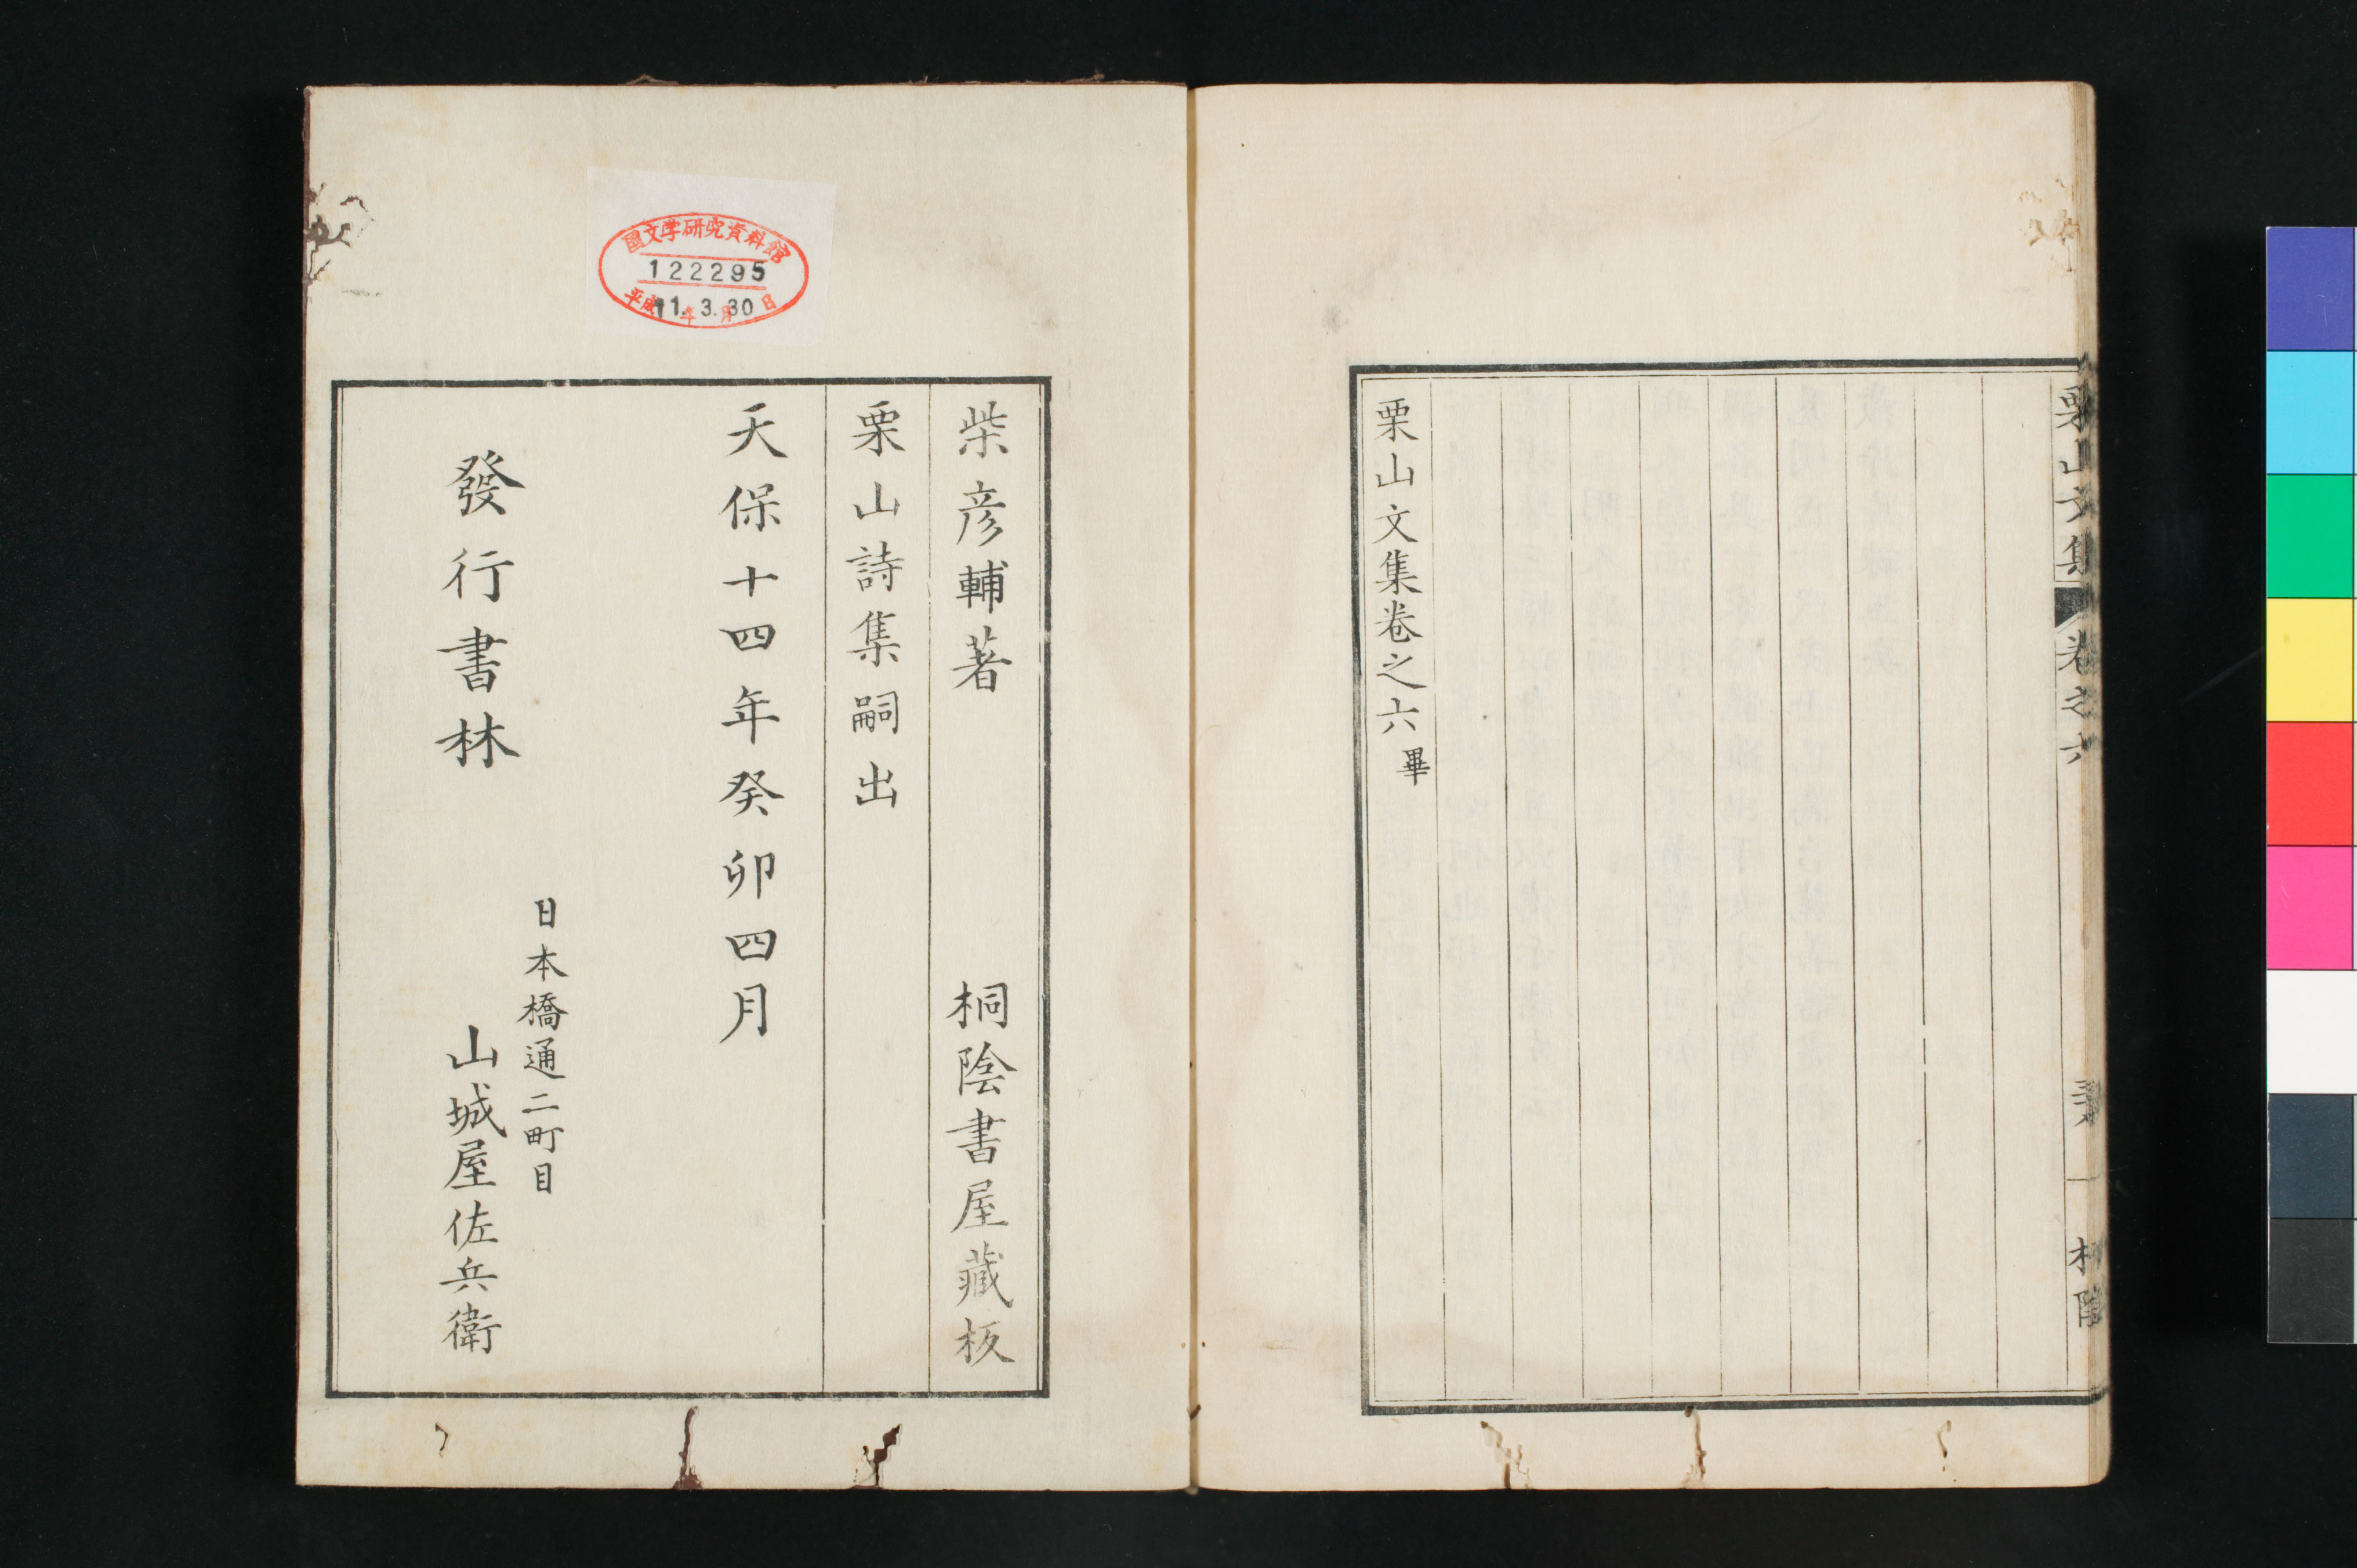 栗山文集
卷之六
栗山文集卷之六畢
柴彦輔著 桐陰書屋藏板
栗山詩集嗣出
天保十四年癸卯四月
發行書林
日本橋通二町目
山城屋佐兵衛
國文学研究資料館
122295
平成11年3月30日